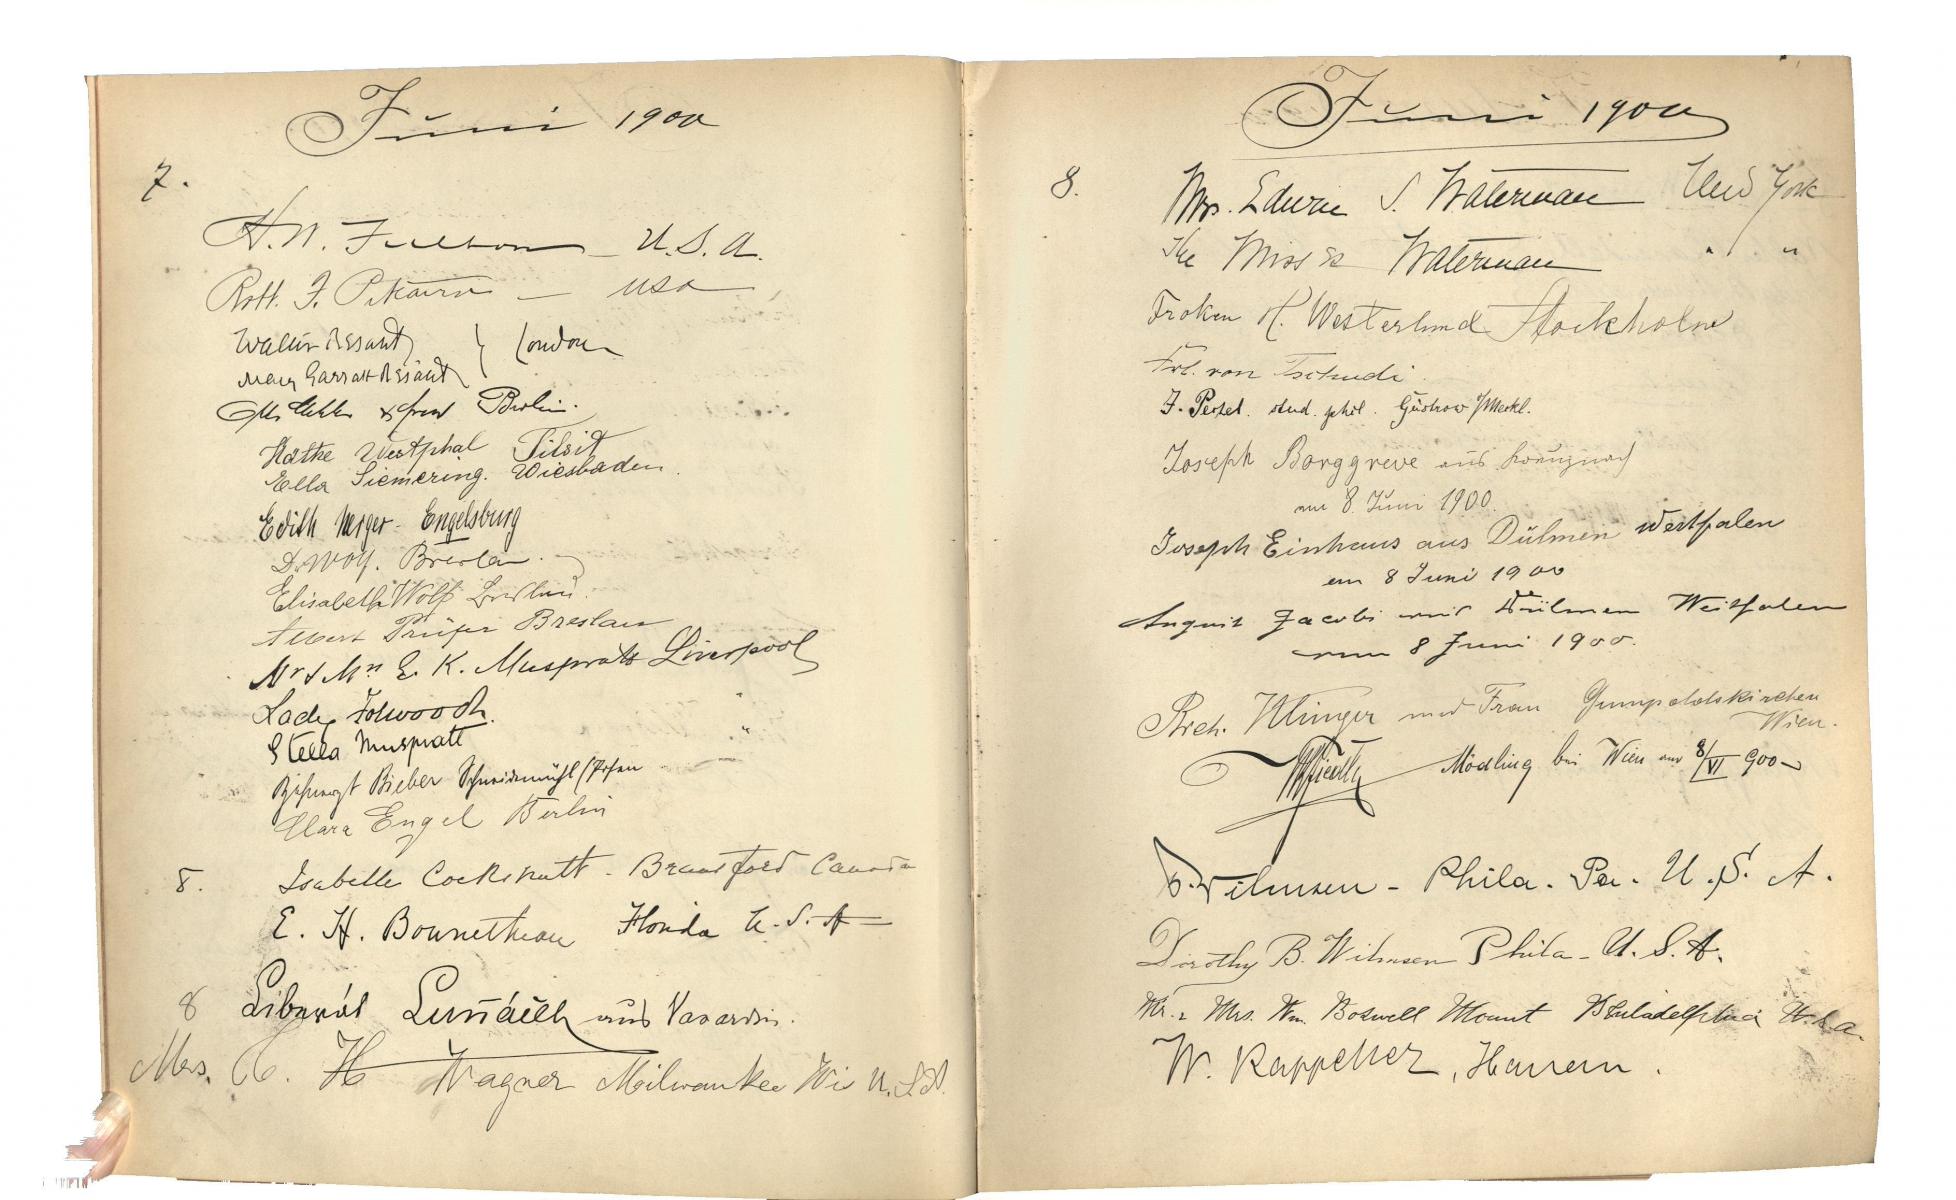 Juni 1900
7.
H. N. Fulton — U.S.A.
Robt. F. Pitcairn — USA
Walter Besant } London
Mary Garratt Besant
Otto & Frau Berlin.
Käthe Westphal Tilsit
Ella Siemering. Wiesbaden.
Edith Engelsburg
Dr. Wolf. Breslau.
Elisabeth Wolf
Albert Prüfer Breslau
Mr & Mrs E. K. Muspratt Liverpool
Lady "
Stella Muspratt "
Bieber Schneidemühl/Posen
Clara Engel Berlin
8. Isabelle Cockshutt - Brantford Canada
E. H. Florida U.S.A
8 aus
Mrs. C. H Wagner Milwaukee Wis U.S.A.
Juni 1900
8. Mrs. Edwin S. Waterman New York
The Misses Waterman " "
Froken H. Westerlund Stockholm
Frl. von Tschudi.
stud. phil. Güstrow i/Meckl.
Joseph Borggreve aus Kreuznach
am 8. Juni 1900.
Joseph Einhaus aus Dülmen Westfalen
am 8 Juni 1900
August Jacobi aus Dülmen Westfalen
am 8 Juni 1900.
Arch. Klinger und Frau Gumpoldskirchen
Wien.
Mödling bei Wien am 8/VI 900
Wilmsen - Phila. Pa. U.S.A.
Dorothy B. Wilmsen Phila - U.S.A.
Mr. & Mrs. Wm. Boswell Mount Philadelphia U.S.A.
W. Kappelher,